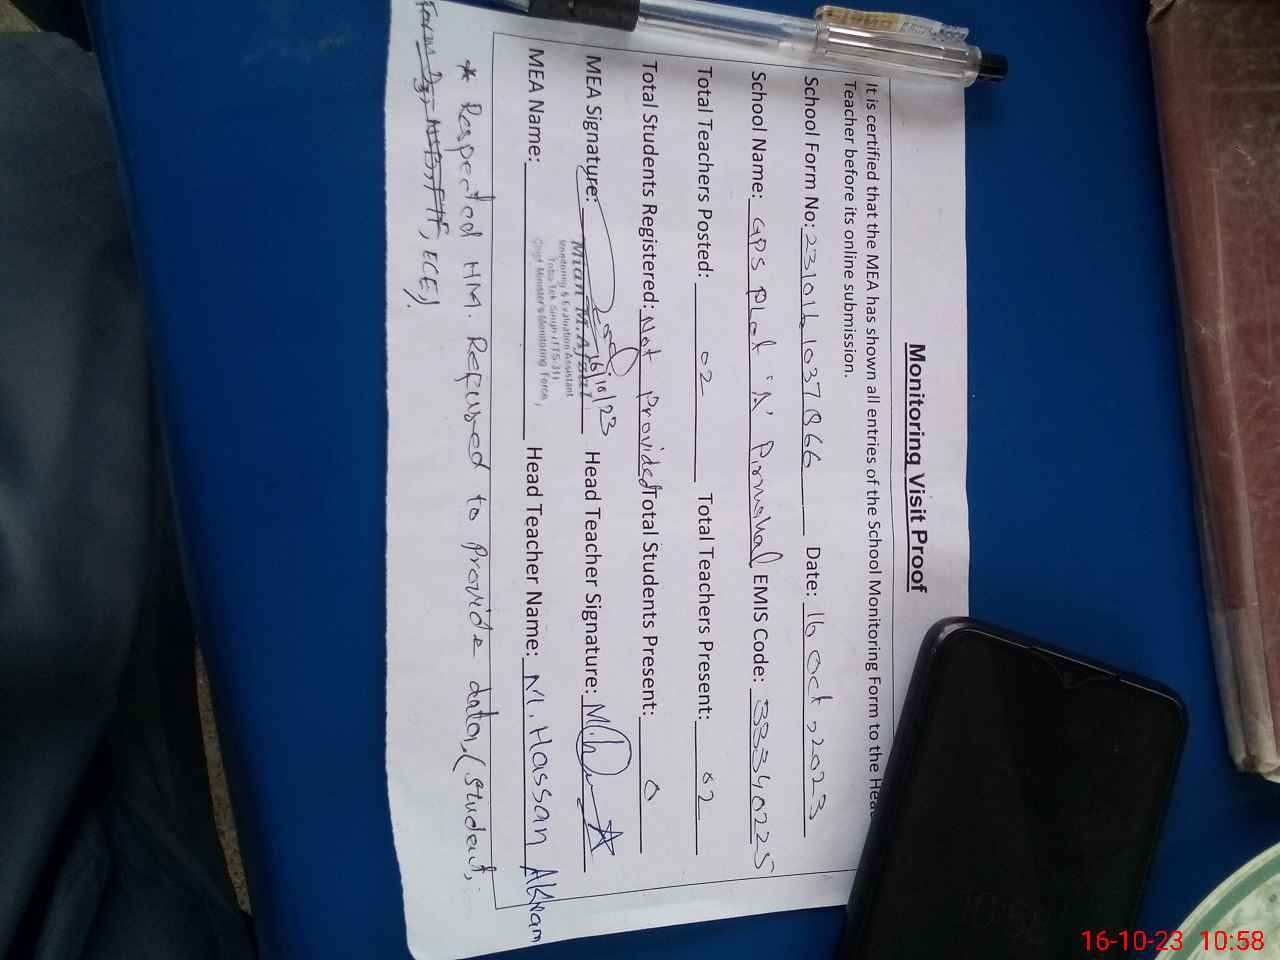 Monitoring Visit Proof
It is certified that the MEA has shown all entries of the School Monitoring Form to the Head
Teacher before its online submission.
School Form No: 2310161037866 Date: 16 Oct, 2023
School Name: GPS Plot 'A' Pirmahal EMIS Code: 33340225
Total Teachers Posted: 02 Total Teachers Present: 02
Total Students Registered: Not Provided Total Students Present: 0
MEA Signature: 16/10/23 Head Teacher Signature:
Mian M.
Monitoring & Evaluation Assistant
Toba Tek Singh (TTS-31)
Chief Minister's Monitoring Force,
MEA Name: Head Teacher Name: M. Hassan Akram
* Respected HM. Refused to provide data, (Student,
Farm ECE).
10:58
16-10-23 10:58